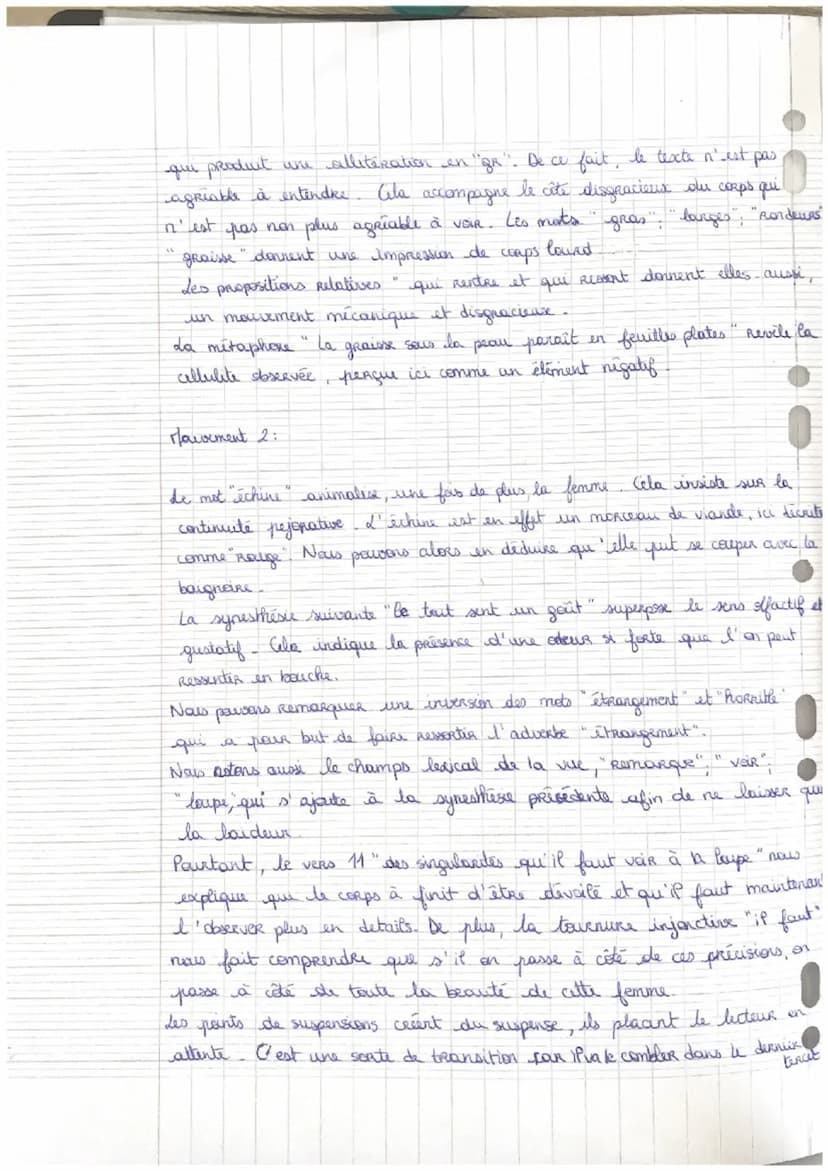 qui produit une allitération en "gr". De ce fait, le texte n'est pas
agréable à entendre. Cela accompagne le côté disgracieux du corps qui
n'est pas non plus agréable à voir. Les mots "gras"; "larges"; "Rondeurs"
"graisse" donnent une impression de corps lourd.
Les propositions relatives "qui rentre et qui ressort donnent elles-aussi,
un mouvement mécanique et disgracieux.
La métaphore "La graisse sous la peau paraît en feuilles plates" révèle la
cellulite observée, perçue ici comme un élément négatif.
Mouvement 2:
Le mot "échine" animalise, une fois de plus, la femme. Cela insiste sur la
continuité péjorative. L'échine est en effet un morceau de viande, ici décrite
comme "Rouge". Nous pouvons alors en déduire qu'elle put se couper avec la
baignoire.
La synesthésie suivante "Le tout sent un goût" superpose le sens olfactif et
gustatif. Cela indique la présence d'une odeur si forte que l'on peut
Ressentir en bouche.
Nous pouvons Remarquer une inversion des mots "étrangement" et "horrible"
qui a pour but de faire ressortir l'adverbe "étrangement".
Nous notons aussi le champs lexical de la vue, "Remarque"; "voir";
"loupe", qui s'ajoute à la synesthésie précédente afin de ne laisser que
la laideur.
Pourtant, le vers 11 "des singularités qu'il faut voir à la loupe" nous
explique que le corps à finit d'être dévoilé et qu'il faut maintenant
l'observer plus en détails. De plus, la tournure injonctive "il faut"
nous fait comprendre que s'il on passe à côté de ces précisions, on
passe à côté de toute la beauté de cette femme.
Les points de suspensions créent du suspense, ils placent le lecteur en
attente. C'est une sorte de transition car il va le combler dans le dernier
tercet